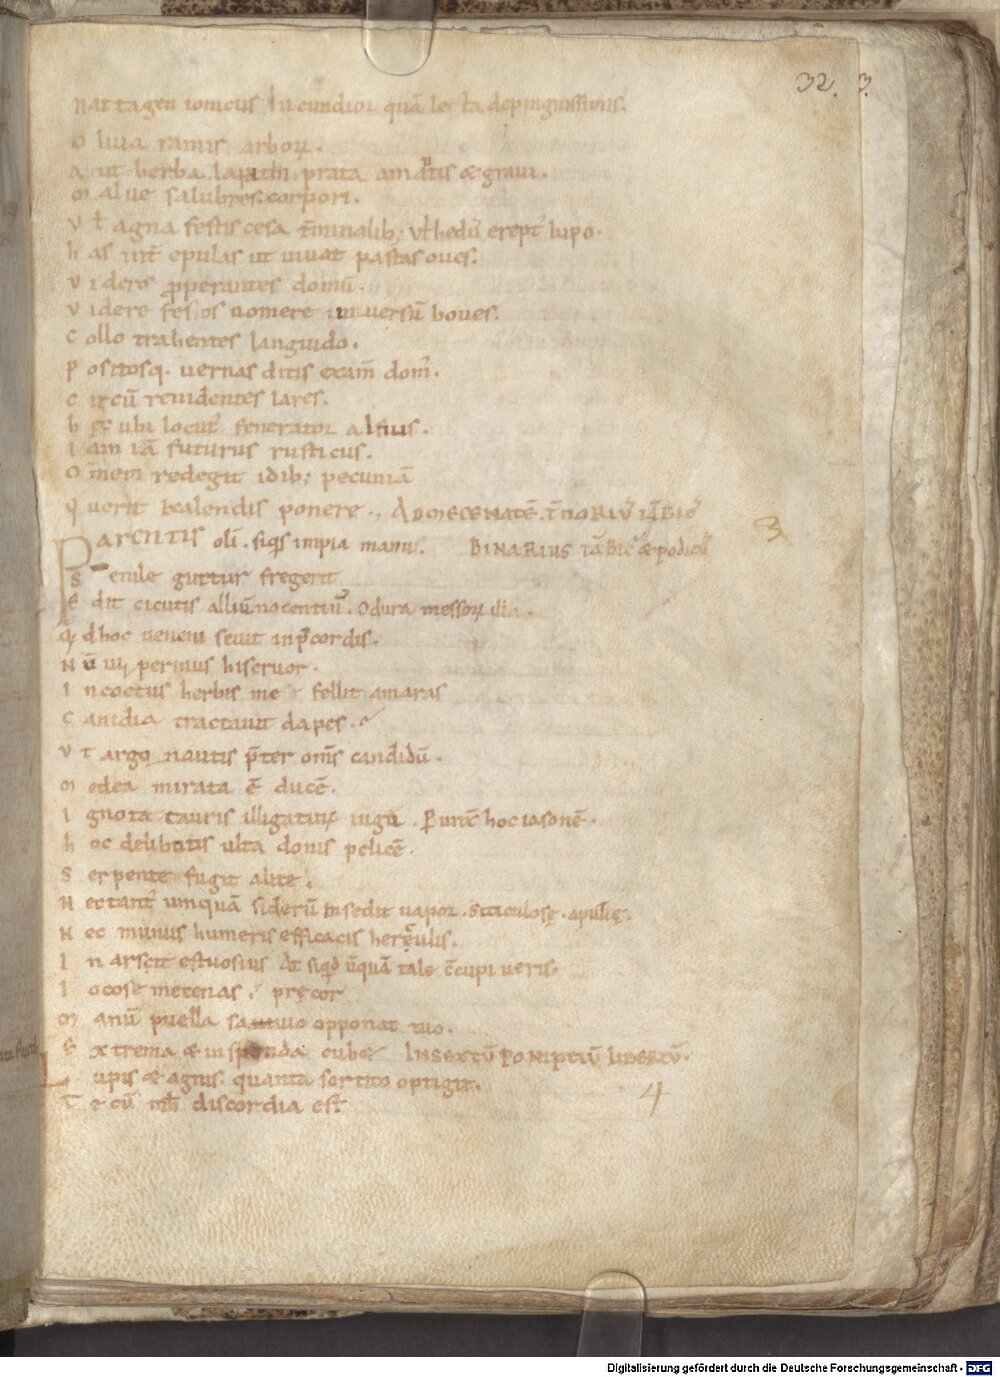 32. 3.
Nat tagen ionicus Iucundior quā lecta depinguissimis.
O liua ramis arborꝝ.
A ut herba lapathi prata amātis & graui.
M alue salubres. corpori.
V ł agna festis cesa t̄minalib; vł hedꝰ ereptꝰ lupo.
h as int̄ epulas ut iuuat pastas oues.
V idere ꝓperantes domū.
V idere fessos uomere inuersū boues.
C ollo trahentes languido.
P ositosq. uernas ditis exam̄ domꝰ.
C ircū renidentes lares.
h ec ubi locutꝰ fenerator alfius.
I am iā futurus rusticus.
O m̄em redegit idib; pecuniā
Q uerit kalendis ponere., ADMECENATĒ.
P ARENTIS oli. siq̄s impia manu. BINARIUS IĀBICꝰ æpodicꝰ
3
S enile guttur fregerit
E dit cicutis alliū nocentiꝰ. O dura messorꝝ ilia.
Q d hoc ueneni seuit in p̄cordis.
N ū uiperinus his cruor.
I ncoctus herbis me fellit an malas
C anidia tractauit dapes.
V t argonautis p̄ter om̄s candidū.
M edea mirata ē ducē.
I gnota tauris illigaturū iuga. Punx̄ hoc iasonē.
h oc delibutis ulta donis pelicē.
S erpente fugit alite.
N ec tantꝰ umquā siderū insedit uapor. Siticulosę. apulię.
N ec munus humeris efficacis herculis.
I narsit estuosius At siqd ūquā tale c̄cupiueris.
I ocose mecenas. pręcor
M anū puella sauiuo opponat tuo.
E xtrema & in sponda cubet INSEXTŪ POMPEIŪ LIBERTŪ.
L upis & agnis. quanta sortito optigit.
T ecū mihi discordia est
4
Digitalisierung gefördert durch die Deutsche Forschungsgemeinschaft - DFG